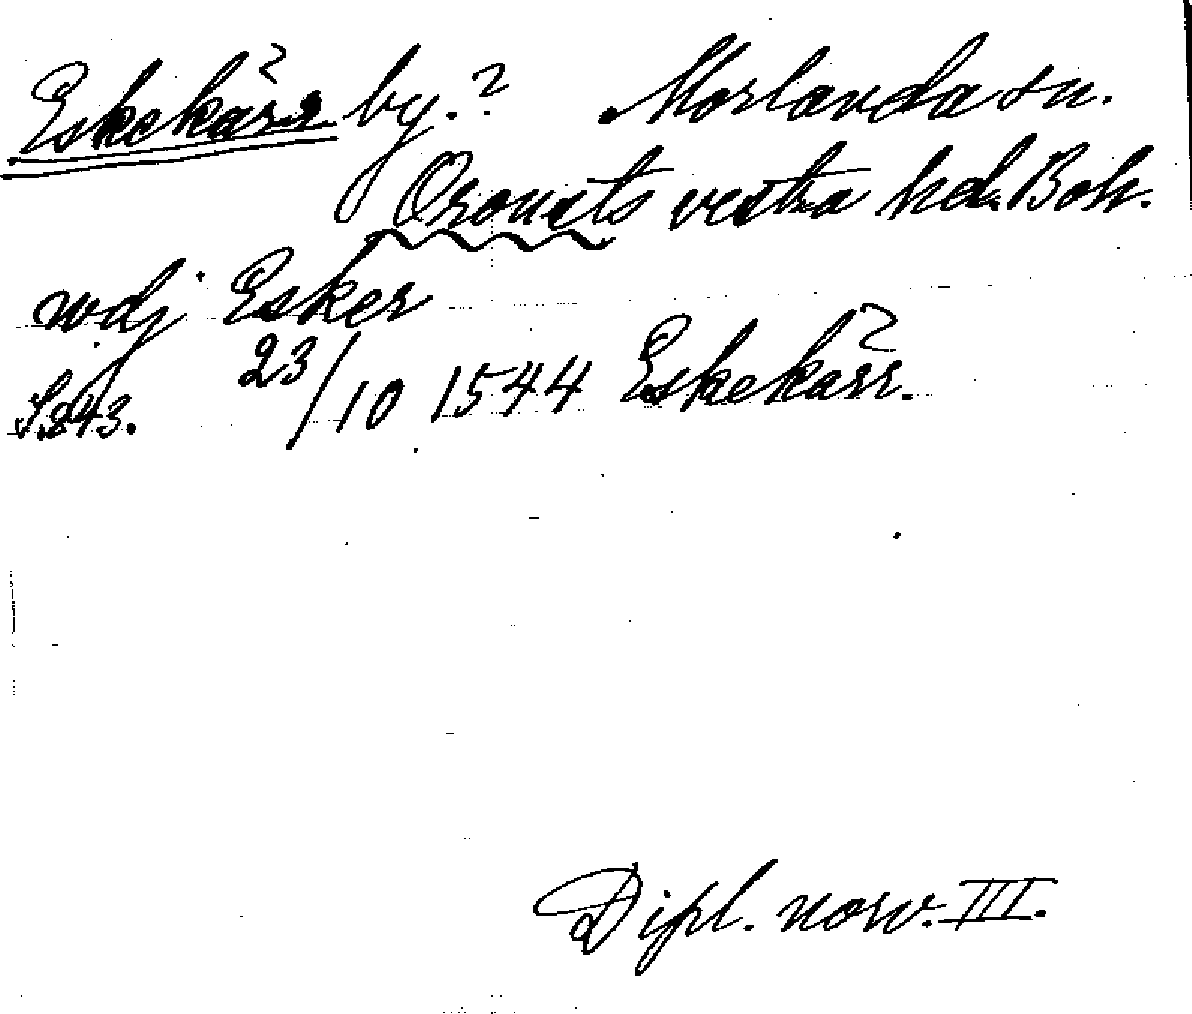 Eskekärr by.? Morlanda sn.
Orousts vestra hd. Boh.
wdj Esker
S.843. 23/10 1544 Eskekärr.
Dipl. norv. III.